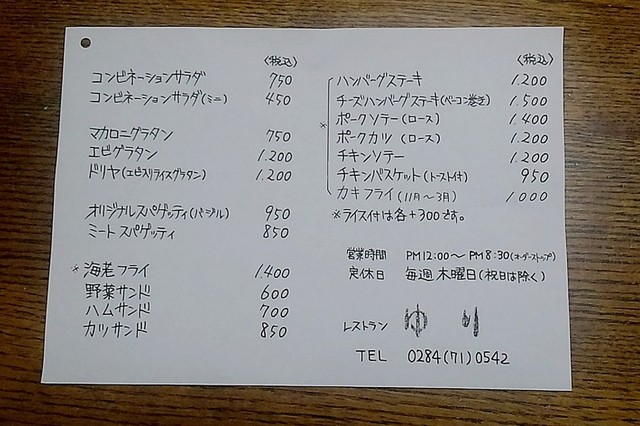 〈税込〉
コンビネーションサラダ 750
コンビネーションサラダ(ミニ) 450
マカロニグラタン 750
エビグラタン 1.200
ドリヤ(エビ入りライスグラタン) 1.200
オリジナルスパゲッティ(バジル) 950
ミートスパゲッティ 850
※海老フライ 1.400
野菜サンド 600
ハムサンド 700
カツサンド 850
〈税込〉
ハンバーグステーキ 1.200
チーズハンバーグステーキ(ベーコン巻き) 1.500
※ポークソテー(ロース) 1.400
ポークカツ (ロース) 1.200
チキンソテー 1.200
チキンバスケット(トースト付) 950
カキフライ(11月〜3月) 1000
※ライス付は各+300です。
営業時間 PM12:00〜PM8:30(オーダーストップ)
定休日 毎週木曜日(祝日は除く)
レストラン ゆり
TEL 0284(71)0542